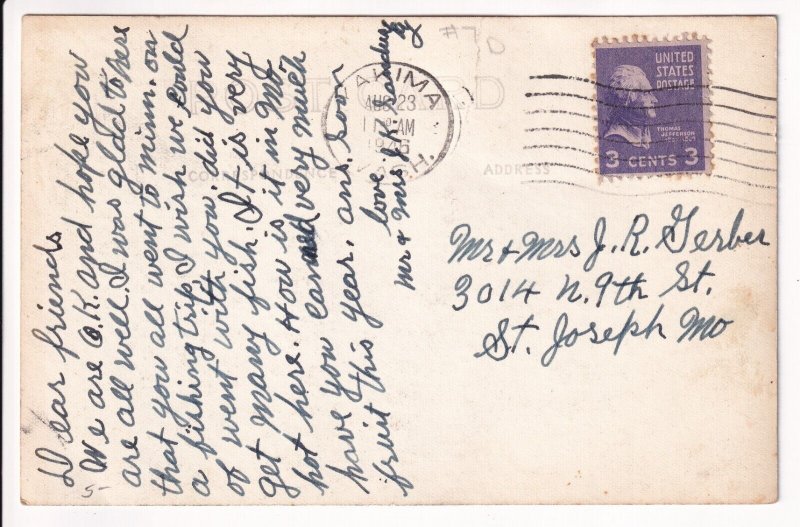 Dear friends
We are O.K. and hope you
are all well. I was glad to here
that you all went to minn. on
a fishing trip. I wish we could
of went with you, did you
get many fish. It is very
hot here. How is it in Mo.
have you caned very much
fruit this year. ans. soon
love
Mr & Mrs R.K.
#70
POST CARD
CORRESPONDENCE
ADDRESS
YAKIMA
AUG 23
AM
1946
WASH.
UNITED
STATES
POSTAGE
THOMAS
JEFFERSON
3 CENTS 3
Mr & Mrs J. R. Gerber
3014 N. 9th St.
St. Joseph Mo
5-